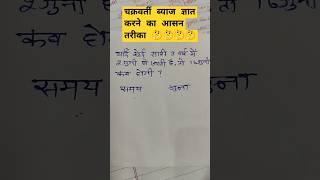 चक्रवर्ती ब्याज ज्ञात
करने का आसन
तरीका 🤔🤔🤔🤔
यदि कोई राशी 3 वर्ष में
2 गुनी हो जाती है, तो 16 गुनी
कब होगी ?
समय गुना